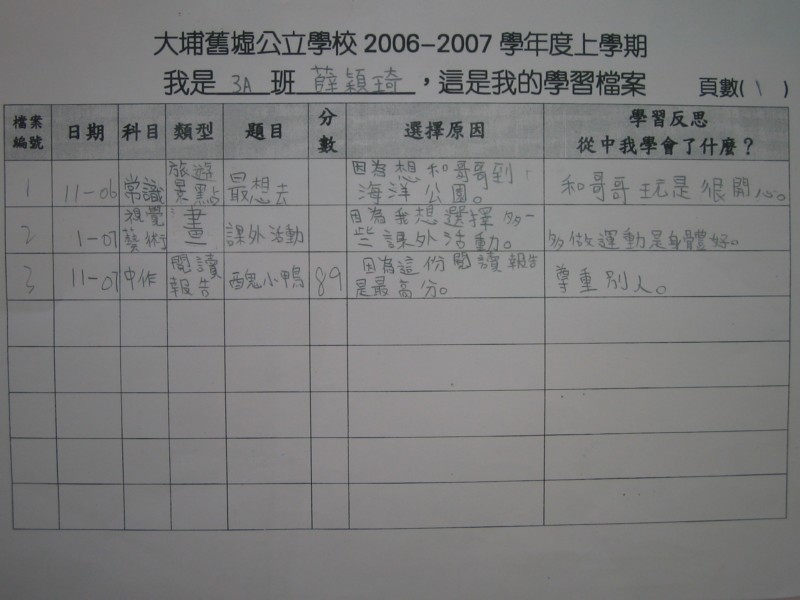 大埔舊墟公立學校 2006-2007 學年度上學期
我是 3A 班 薛穎琦，這是我的學習檔案 頁數( 1 )
檔案編號 日期 科目 類型 題目 分數 選擇原因 學習反思 從中我學會了什麼？
1 11-06 常識 旅遊景點 最想去 因為想和哥哥到海洋公園。 和哥哥玩是很開心。
2 1-07 視覺藝術 畫 課外活動 因為我想選擇多一些課外活動。 多做運動是身體好。
3 11-07 中作 閱讀報告 醜小鴨 89 因為這份閱讀報告是最高分。 尊重別人。